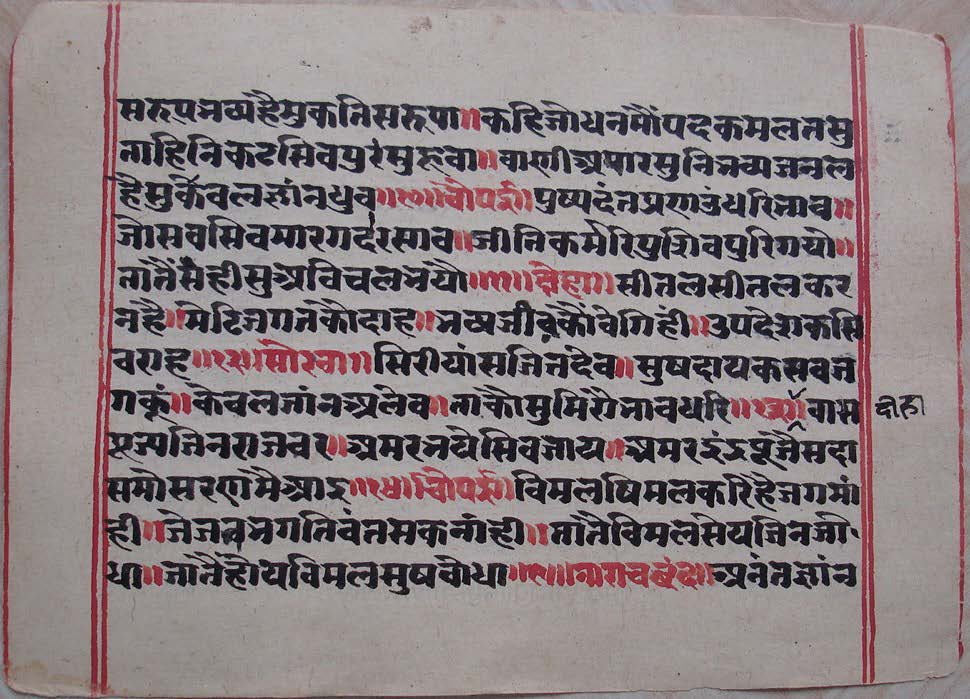 सरूपभव्यहैमुकतिसरूपा॥कहिजोधनमौंपदकमलतसु
ताहिनिकटसिवपुरंसुहवा॥वाणीअपारसुनिभव्यजनल
हैसुकेवलज्ञांनधुव॥॥चौपई॥पुष्पदंतप्रणउंधरिभाव॥
जोसबसिवमारगदरसाव॥जीतिकर्मरिपुशिवपुरिगयो॥
तातैंसंहीसुअविचलभयौ॥॥दोहा॥सीतलसीतलकर
नहै॥मेटिजगतकौदाह॥भव्यजीवकौंवेगिहीं॥उपदेशकसि
वराह॥॥सोरठा॥सिरीयांसजिनदेव॥सुषदायकसबज
गकूं॥केवलज्ञांनअलेव॥ताकौसुमिरौंभावधरि॥ वास
दोहा
पूज्यजिनराजवर॥अमरभयेसिवजाय॥अमरइंद्रपूजैसदा
समोसरणमैआइ॥॥चौपई॥विमलविमलकरिहैजगमां
ही॥जेजनभगतिवंतसकनांही॥तातैविमलसेयजिनजी
धा॥जातैंहोयविमलसुषबोधा॥॥नाराचछंद॥अनंतज्ञांन